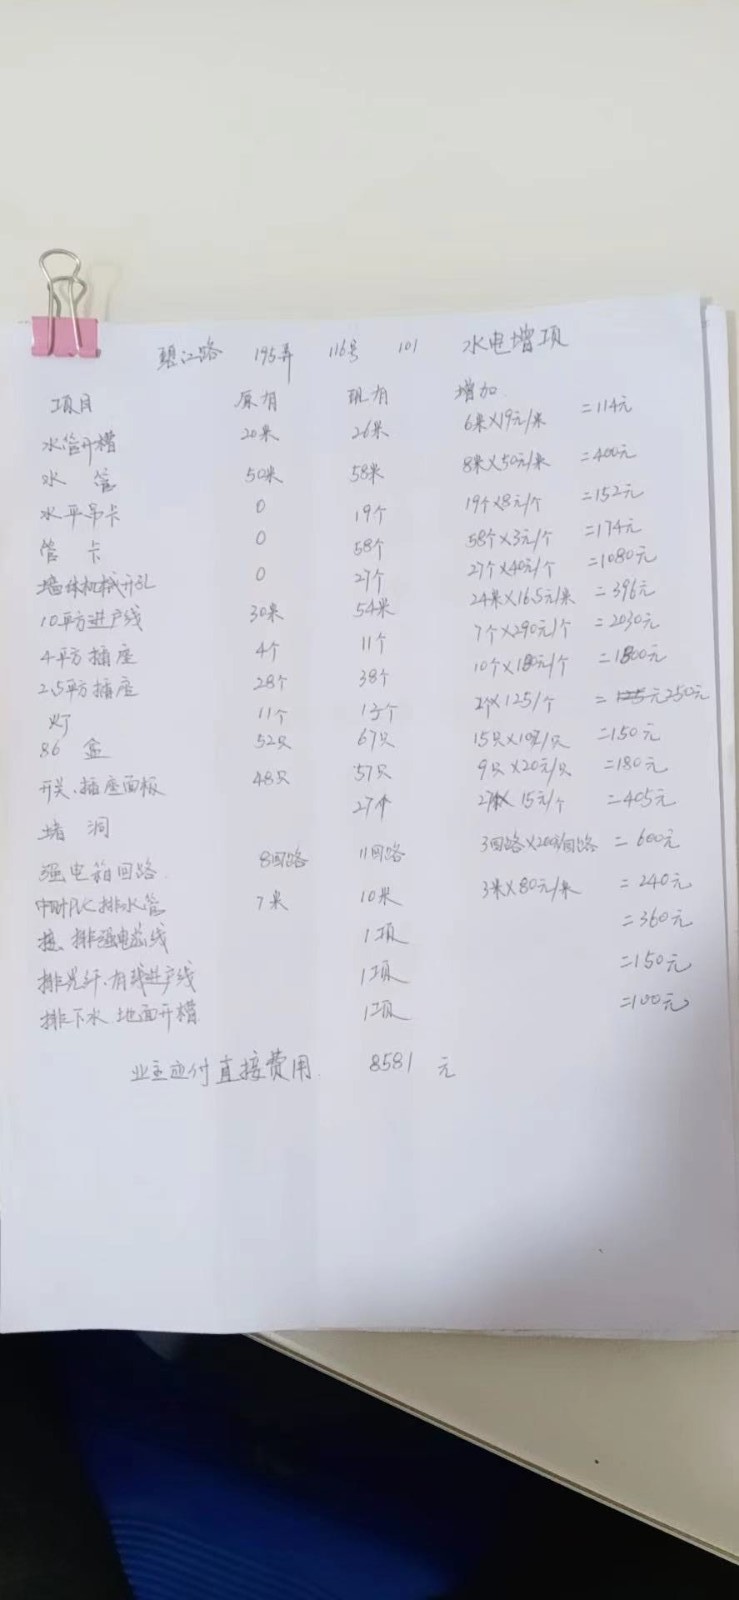 碧江路 195弄 116号 101 水电增项
项目 原有 现有 增加
水管开槽 20米 26米 6米×19元/米 =114元
水 管 50米 58米 8米×50元/米 =400元
水平吊卡 0 19个 19个×8元/个 =152元
管 卡 0 58个 58个×3元/个 =174元
墙体机械开孔 0 27个 27个×40元/个 =1080元
10平方进户线 30米 54米 24米×16.5元/米 =396元
4平方插座 4个 11个 7个×290元/个 =2030元
2.5平方插座 28个 38个 10个×180元/个 =1800元
灯 11个 13个 2个×125/个 =125元250元
86 盒 52只 67只 15只×10元/只 =150元
开关、插座面板 48只 57只 9只×20元/只 =180元
堵 洞 27个 27个×15元/个 =405元
强电箱回路 8回路 11回路 3回路×200/回路 =600元
PVC排水管 7米 10米 3米×80元/米 =240元
排强电 线 1项 =360元
排光纤、有线进户线 1项 =150元
排下水 地面开槽 1项 =100元
业主应付直接费用 8581 元